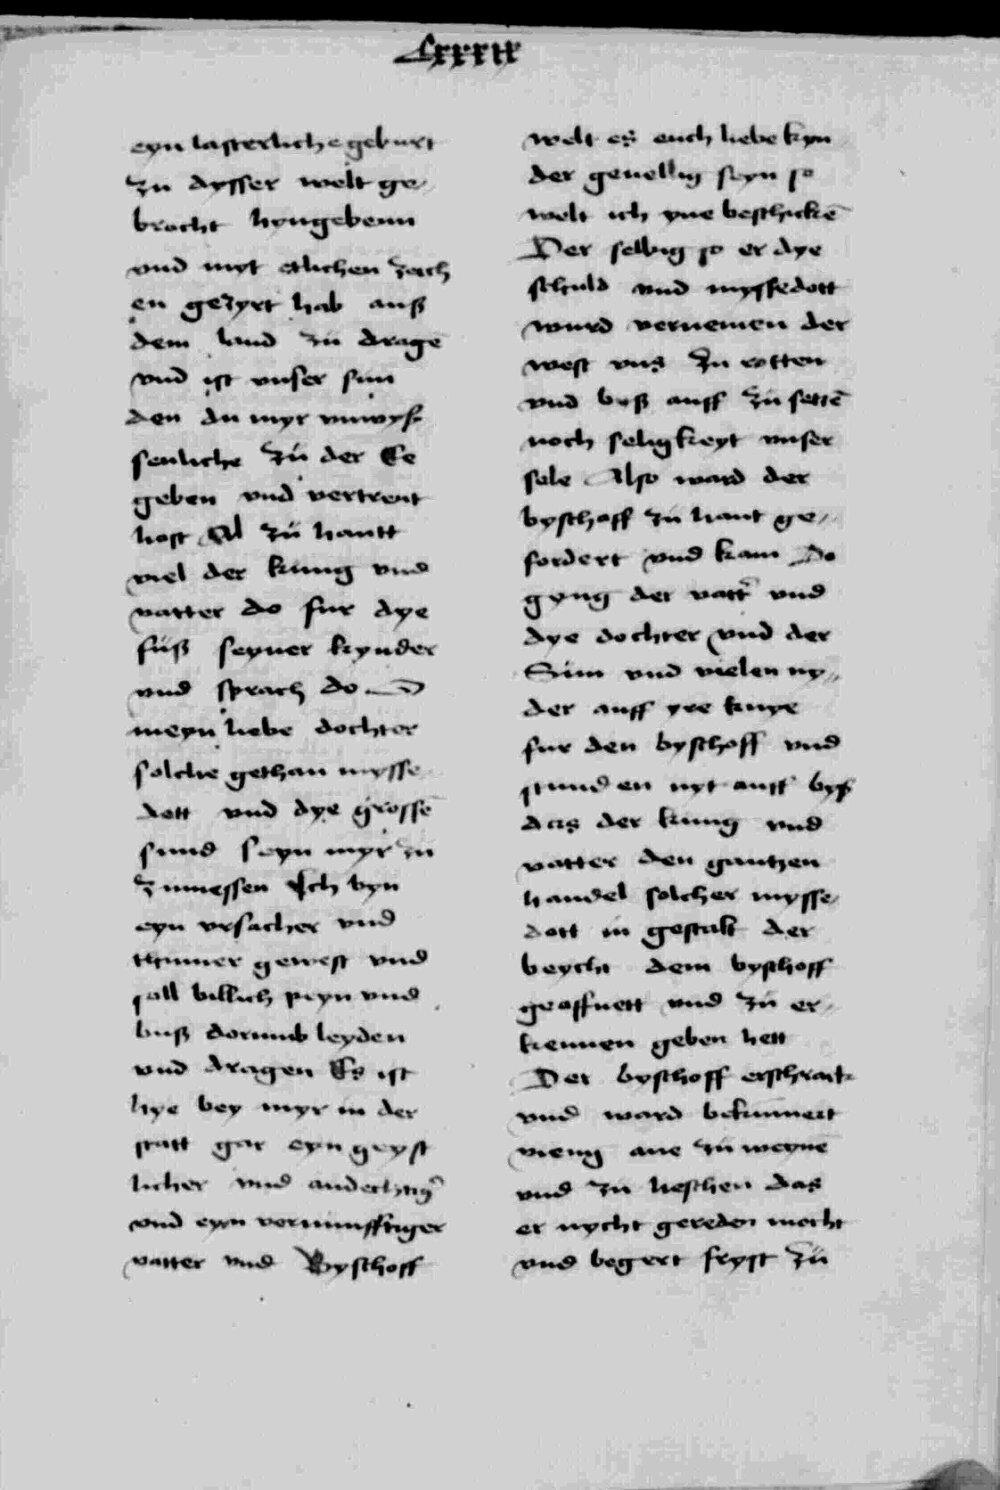 Lxxxix
eyn lasterliche geburt
zu dysser welt ge„
brocht hyngebenn
vnd myt etlichen zeich
en gezyrt hab auß
dem land zu dragē
vnd ist vnser sun
den du myr vnwyß
senliche zu der Ee
geben vnd vertreut
host Al zu hantt
viel der kung vnd
vatter do fur dye
füß seyner kynder
vnd sprach do
meyn liebe dochter
solche gethan mysse„
dott vnd dye grossē
sund seyn myr zu
zumessen Ich byn
eyn vrsacher vnd
gewest vnd
soll billich peyn vnd
buß dorumb leyden
vnd dragen Es ist
hye bey myr in der
statt gar eyn geyst
licher vnd andechtig̃
vnd eyn vernunfftiger
vatter vnd Byschoff
welt es euch liebe kyn
der geuellig seyn so
welt ich yne beschickē
Der selbig so er dye
schuld vnd myssedott
wurd vernemen der
west vns zu rotten
vnd buß auff zu settē
noch seligkeyt vnser
sele Also ward der
byschoff zu hant ge„
fordert vnd kam Do
gyng der vatt̃ vnd
dye dochter vnd der
Sun vnd vielen ny„
der auff yre knye
fur den byschoff vnd
stunden nyt auff byß
das der kung vnd
vatter den gantzen
handel solcher mysse„
dott in gestalt der
beycht dem byschoff
geoffnett vnd zu er„
kennen geben hett
Der byschoff erschrack
vnd ward bekumert
vieng ane zu weynē
vnd zu heschen das
er nycht gereden mocht
vnd begert fryst zu